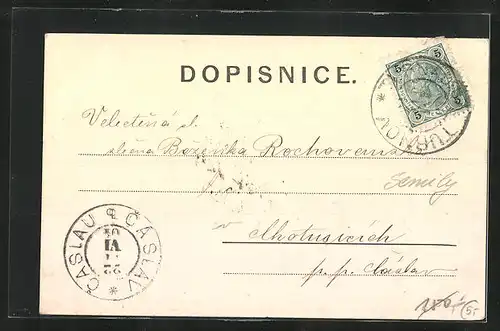 DOPISNICE.
5 5
5 5
TURNOV
Velectěná sl.
slečna Boženka Rochovena
Semily
v
Chotusicích
p. p. Čáslav
ČASLAU ČÁSLAV
22
VI